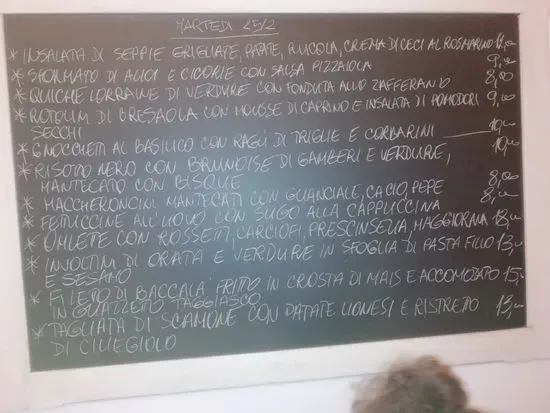 MARTEDÌ 25/2
* INSALATA DI SEPPIE GRIGLIATE, PATATE, RUCOLA, CREMA DI CECI AL ROSMARINO
* SFORMATO DI ALICI E CICORIE CON SALSA PIZZAIOLA 9,=
* QUICHE LORRAINE DI VERDURE CON FONDUTA ALLO ZAFFERANO 8,00
* ROTOLINI DI BRESAOLA CON MOUSSE DI CAPRINO E INSALATA DI POMODORI 9,00
SECCHI
* GNOCCHETTI AL BASILICO CON RAGÙ DI TRIGLIE E CORBARINI 10,=
* RISOTTO NERO CON BRUNOISE DI GAMBERI E VERDURE, 10,=
MANTECATO CON BISQUE
* MACCHERONCINI MANTECATI CON GUANCIALE, CACIO, PEPE 8,00
* FETTUCCINE ALL'UOVO CON SUGO ALLA CAPPUCCINA 8,=
* OMLETE CON ROSSETTI, CARCIOFI, PRESCINSEUA, MAGGIORANA 13,=
* INVOLTINI DI ORATA E VERDURE IN SFOGLIA DI PASTA FILLO 13,=
E SESAMO
* FILETTO DI BACCALÀ FRITTO IN CROSTA DI MAIS E ACCOMODATO 15,=
IN GUAZZETTO TAGGIASCO
* TAGLIATA DI SCAMONE CON PATATE LIONESI E RISTRETTO 13,=
DI CILIEGIOLO